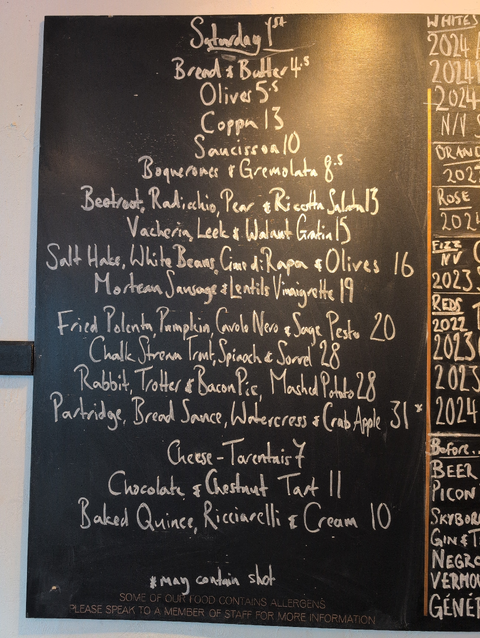 Saturday 1st
Bread & Butter 4.5
Olives 5.5
Coppa 13
Saucisson 10
Boquerones & Gremolata 8.5
Beetroot, Radicchio, Pear & Ricotta Salata 13
Vacherin, Leek & Walnut Gratin 15
Salt Hake, White Beans, Cime di Rapa & Olives 16
Morteau Sausage & Lentils Vinaigrette 19
Fried Polenta, Pumpkin, Cavolo Nero & Sage Pesto 20
Chalk Stream Trout, Spinach & Sorrel 28
Rabbit, Trotter & Bacon Pie, Mashed Potato 28
Partridge, Bread Sauce, Watercress & Crab Apple 31*
Cheese - Tarentais 7
Chocolate & Chestnut Tart 11
Baked Quince, Ricciarelli & Cream 10
*may contain shot
SOME OF OUR FOOD CONTAINS ALLERGENS
PLEASE SPEAK TO A MEMBER OF STAFF FOR MORE INFORMATION
WHITES
2024
2024
2024
N/V
ORANG
202
ROSE
202
FIZZ
NV
2023
REDS
2022
2023
2023
2024
Before..
BEER
PICON
SKYBOR
GIN & T
NEGRO
VERMOU
GÉNÉP